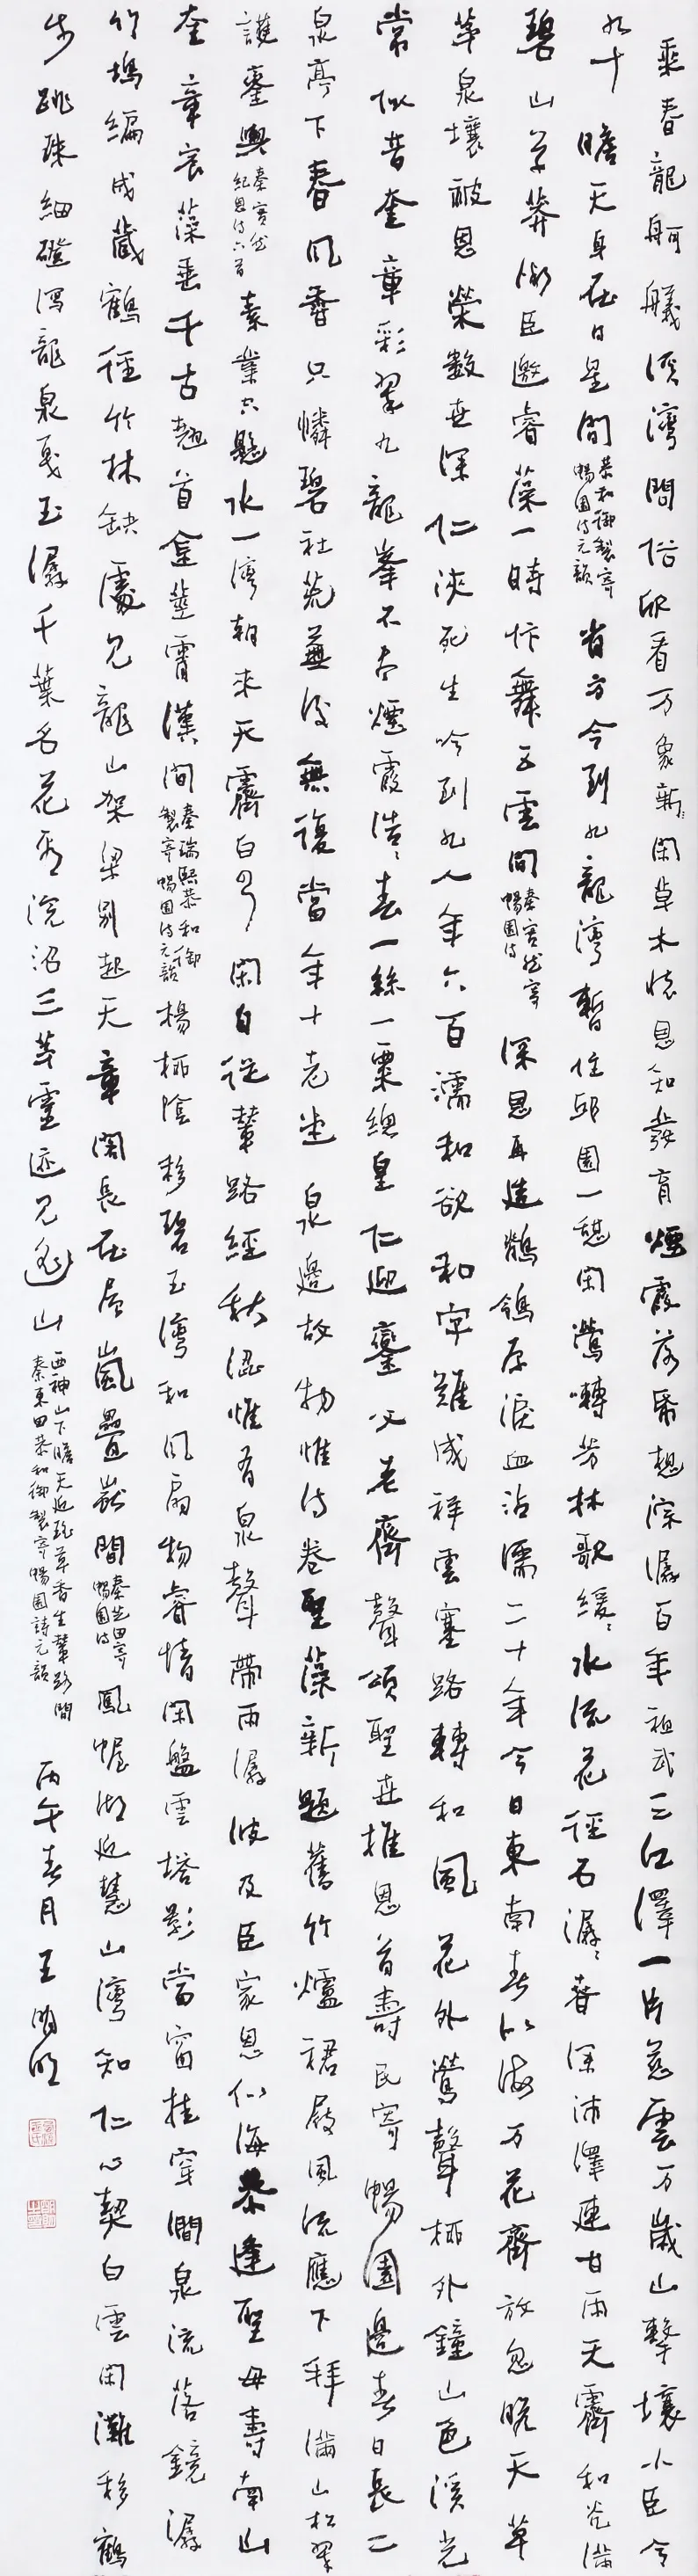 乘春龍舸艤溪灣問俗欣看万象新閑草木懷恩知發育煙霞落帋想淙潺百年祖武三江澤一片慈雲万歲山擊壤小臣今
九十瞻天身在日星間恭和御製寄暢園詩元韻省方今到九龍灣暫住邱園一憩閑鶯囀芳林歌緩〻水流花徑石潺〻春深沛澤連甘雨天霽和光滿
碧山草莽微臣邀睿藻一時忭舞五雲間秦實然寄暢園詩深恩再造鶺鴒原淚血沾濡二十年今日東南春似海万花齊放忽晚天草
莘泉壤被恩榮數世深仁浹死生吟到九八年六百濡和欲和字難成祥雲塞路轉和風花外鶯聲柳外鐘山色溪光
常似昔奎章彩翠九龍峯不舍煙霞浩〻春一絲一粟總皇仁迎鑾父老齊聲頌聖世推恩首壽民寄暢園邊春日長二
泉亭下春風香只憐碧社荒蕪後無復當年十老堂泉邊故物惟詩卷聖藻新題舊竹爐裙屐風流應下拜滿山松翠
護鑾輿秦實然紀恩詩六首素業只懸水一灣朝來天霽白雲閑自從輦路經秋澀惟有泉聲帶雨潺波及臣家恩似海恭逢聖母壽南山
奎章宸藻垂千古翹首金莖霄漢間秦瑞熙恭和御製寄暢園詩元韻楊柳陰移碧玉灣和風扇物睿情閑盤雲塔影當窗挂穿澗泉流落鏡潺
竹塢編成藏鶴徑竹林缺處見龍山架梁別起天章閣長在層嵐疊巘間秦芝田寄暢園詩鳳幄湖近慧山灣知仁心契白雲閑灘移鶴
步跳珠細磴瀉龍泉戛玉潺千葉名花看浣沼三茅靈迹見遥山西神山下瞻天近瑤草香生輦路間秦東田恭和御製寄暢園詩元韻丙午春月王明